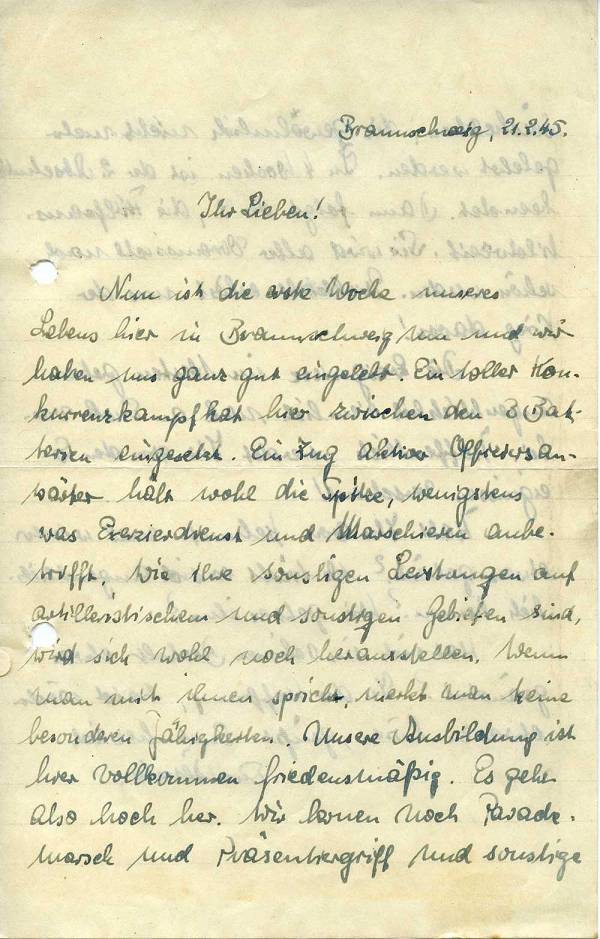 Braunschweig, 21.2.45.
Ihr Lieben!
Nun ist die erste Woche unseres
Lebens hier in Braunschweig um und wir
haben uns ganz gut eingelebt. Ein toller Kon-
kurrenzkampf hat hier zwischen den 3 Bat-
terien eingesetzt. Ein Zug aktiver Offiziersan-
wärter hält wohl die Spitze, wenigstens
was Exerzierdienst und Marschieren anbe-
trifft. Wie ihre sonstigen Leistungen auf
artilleristischem und sonstigen Gebieten sind,
wird sich wohl noch herausstellen. Wenn
man mit ihnen spricht, merkt man keine
besonderen Fähigkeiten. Unsere Ausbildung ist
hier vollkommen friedensmäßig. Es geht
also hoch her. Wir lernen noch Parade-
marsch und Präsentiergriff und sonstige